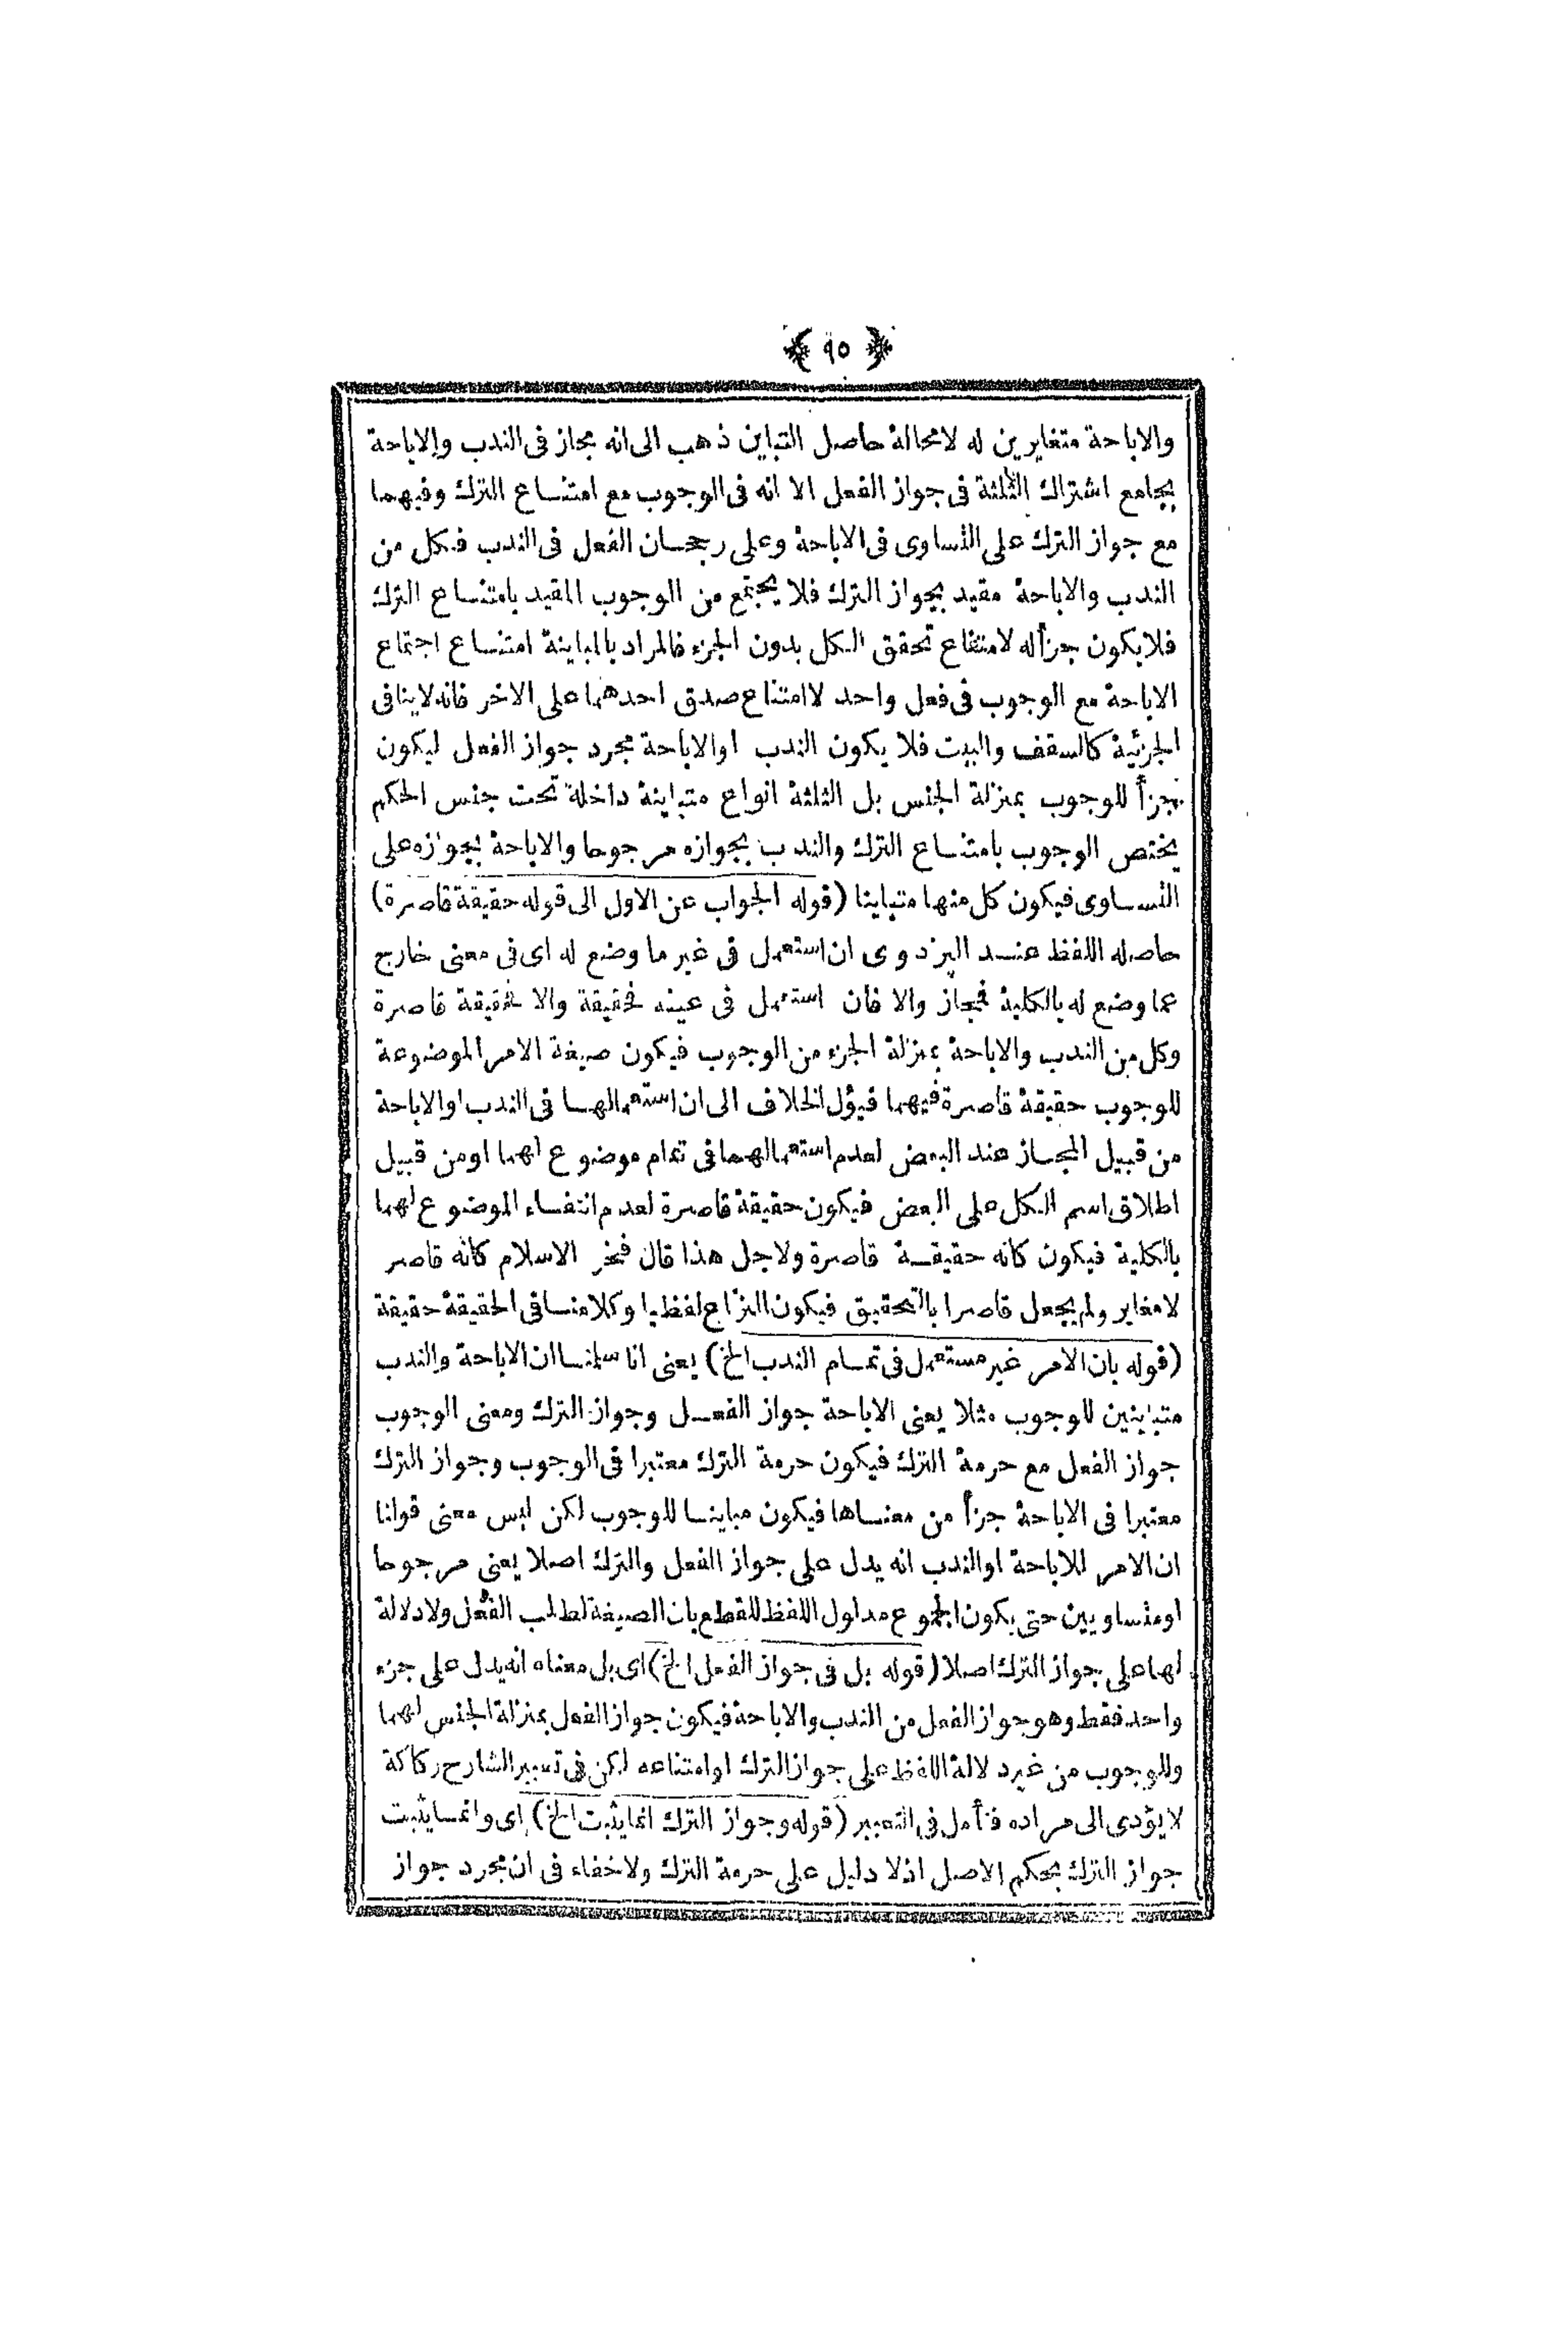 ﴿ ٩٥ ﴾
والاباحة متغايرين له لامحالة حاصل التباين ذهب الى انه مجاز فى الندب والاباحة
بجامع اشتراك الثلثة فى جواز الفعل الا انه فى الوجوب مع امتناع الترك وفيهما
مع جواز الترك على التساوى فى الاباحة وعلى رجحان الفعل فى الندب فكل من
الندب والاباحة مقيد بجواز الترك فلا يجتمع من الوجوب المقيد بامتناع الترك
فلايكون جزأله لامتناع تحقق الكل بدون الجزء فالمراد بالمباينة امتناع اجتماع
الاباحة مع الوجوب فى فعل واحد لا امتناع صدق احدهما على الاخر فانه لاينافى
الجزئية كالسقف والبيت فلا يكون الندب اوالاباحة مجرد جواز الفعل ليكون
جزأ للوجوب بمنزلة الجنس بل الثلثة انواع متباينة داخلة تحت جنس الحكم
يختص الوجوب بامتناع الترك والندب بجوازه مرجوحا والاباحة بجوازه على
التساوى فيكون كل منها متباينا (قوله الجواب عن الاول الى قوله حقيقة قاصرة)
حاصله اللفظ عند البزدوى ان استعمل فى غير ما وضع له اى فى معنى خارج
عما وضع له بالكلية فمجاز والا فان استعمل فى عينه فحقيقة والا فحقيقة قاصرة
وكل من الندب والاباحة بمنزلة الجزء من الوجوب فيكون صيغة الامر الموضوعة
للوجوب حقيقة قاصرة فيهما فيؤل الخلاف الى ان استعمالها فى الندب اوالاباحة
من قبيل المجاز عند البعض لعدم استعمالهما فى تمام موضوع لهما اومن قبيل
اطلاق اسم الكل على البعض فيكون حقيقة قاصرة لعدم انتفاء الموضوع لهما
بالكلية فيكون كانه حقيقة قاصرة ولاجل هذا قال فخر الاسلام كانه قاصر
لامغاير ولم يجعل قاصرا بالتحقيق فيكون النزاع لفظيا وكلامنا فى الحقيقة حقيقة
(قوله بان الامر غير مستعمل فى تمام الندب الخ) يعنى انا سلمنا ان الاباحة والندب
متباينين للوجوب مثلا يعنى الاباحة جواز الفعل وجواز الترك ومعنى الوجوب
جواز الفعل مع حرمة الترك فيكون حرمة الترك معتبرا فى الوجوب وجواز الترك
معتبرا فى الاباحة جزأ من معناها فيكون مباينا للوجوب لكن ليس معنى قولنا
ان الامر للاباحة اوالندب انه يدل على جواز الفعل والترك اصلا يعنى مرجوحا
اومتساويين حتى يكون المجموع مدلول اللفظ للقطع بان الصيغة لطلب الفعل ولادلالة
لها على جواز الترك اصلا (قوله بل فى جواز الفعل الخ) اى بل معناه انه يدل على جزء
واحد فقط وهو جواز الفعل من الندب والاباحة فيكون جواز الفعل بمنزلة الجنس لهما
وللوجوب من غير دلالة اللفظ على جواز الترك اوامتناعه لكن فى تعبير الشارح ركاكة
لا يؤدى الى مراده فتأمل فى التعبير (قوله وجواز الترك انما يثبت الخ) اى وانما يثبت
جواز الترك بحكم الاصل اذلا دليل على حرمة الترك ولاخفاء فى ان مجرد جواز